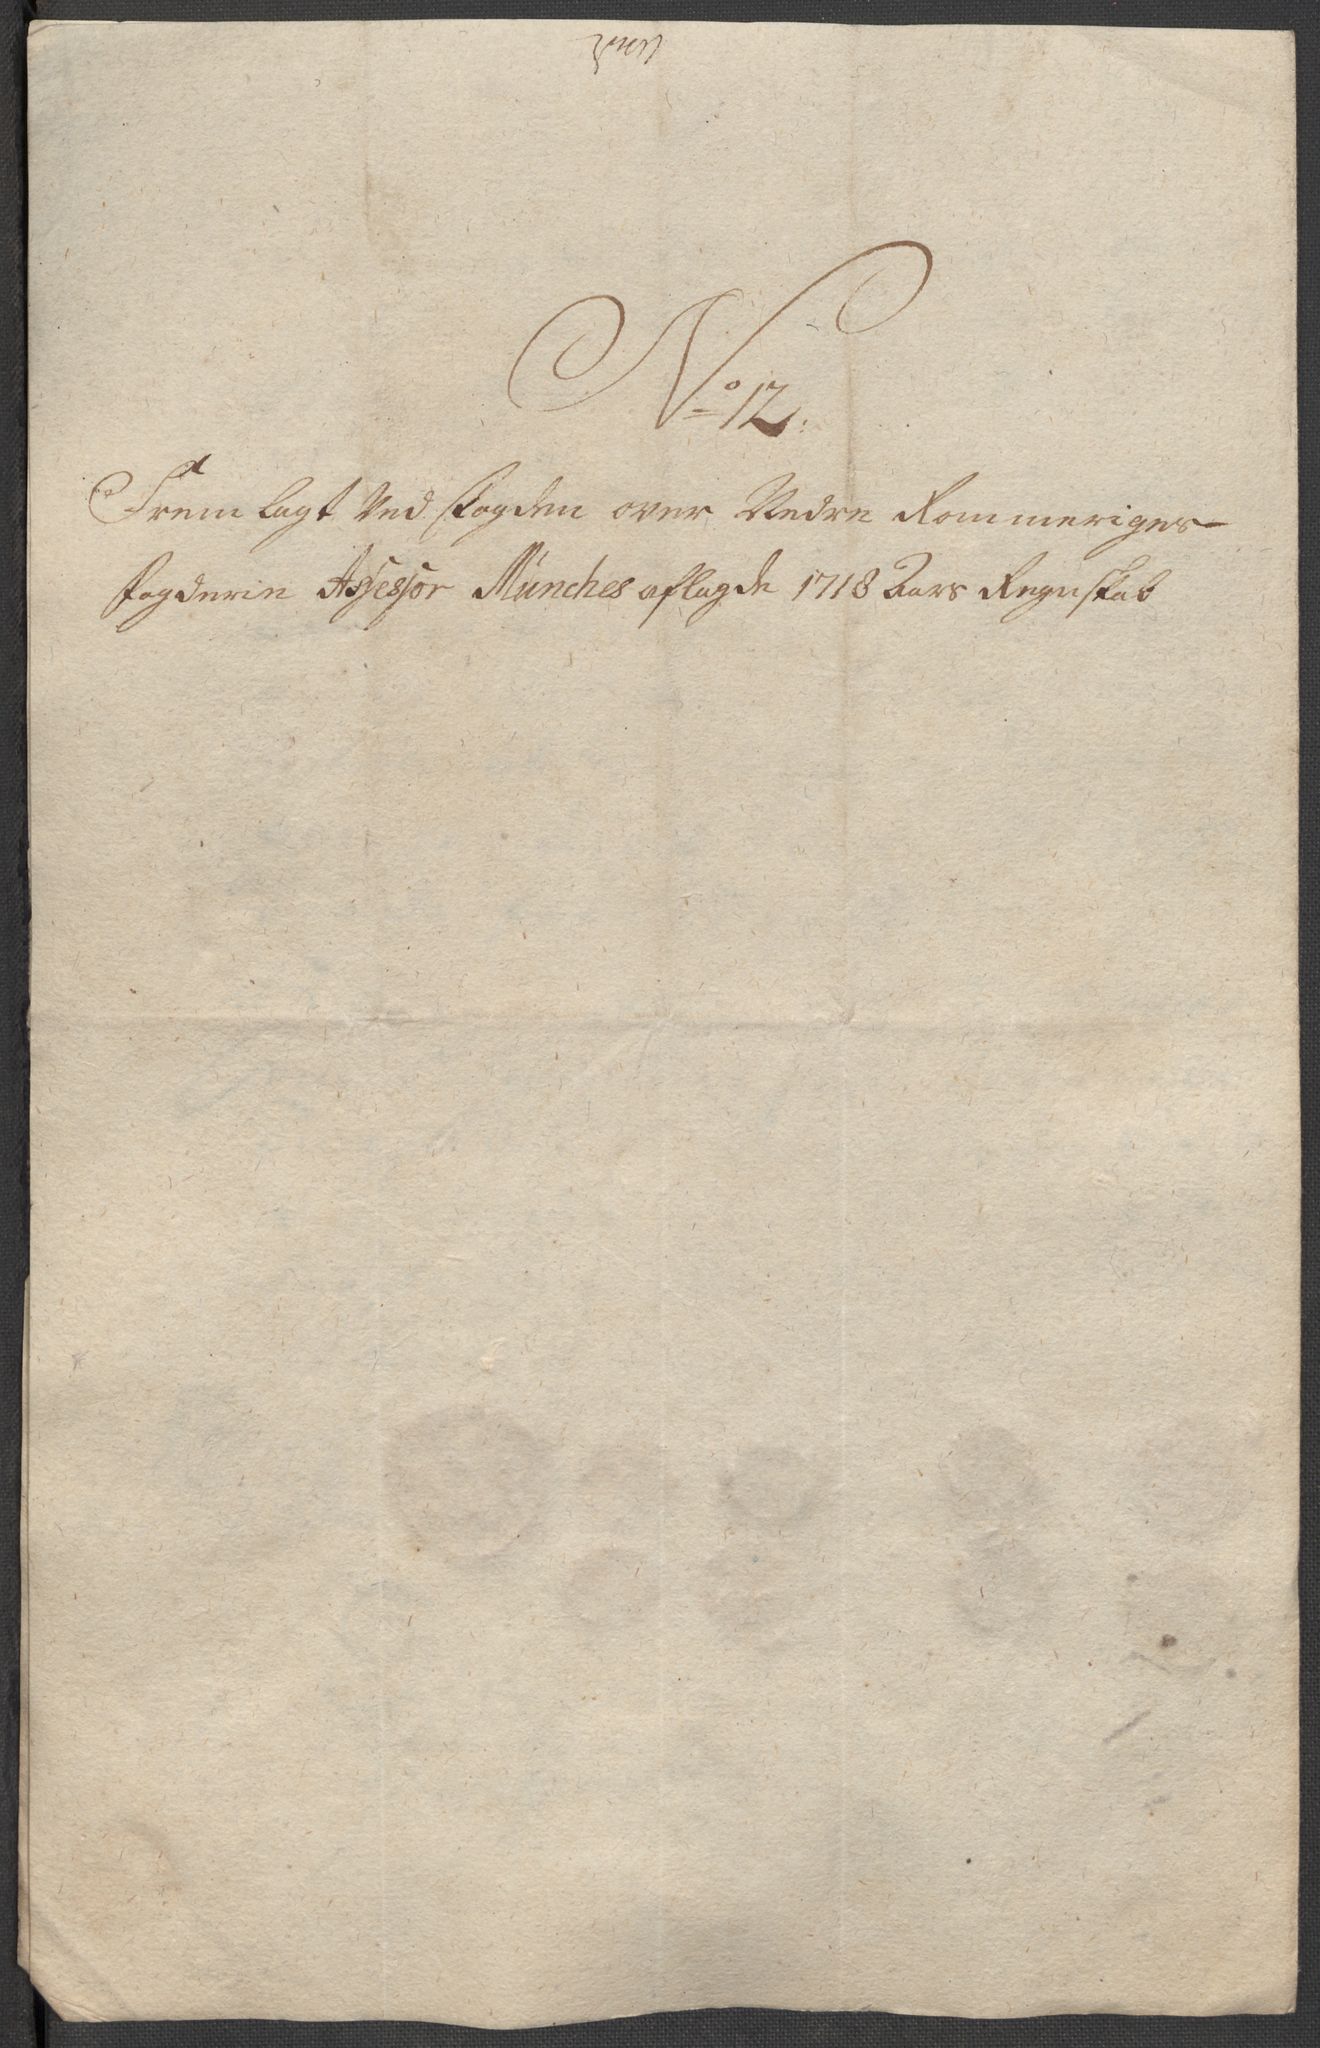 No 12.
Fremlagt Ved Fogden over Nedre Rommeriges
fogderie Assessor Münches aflagde 1718 Aars Regnskab